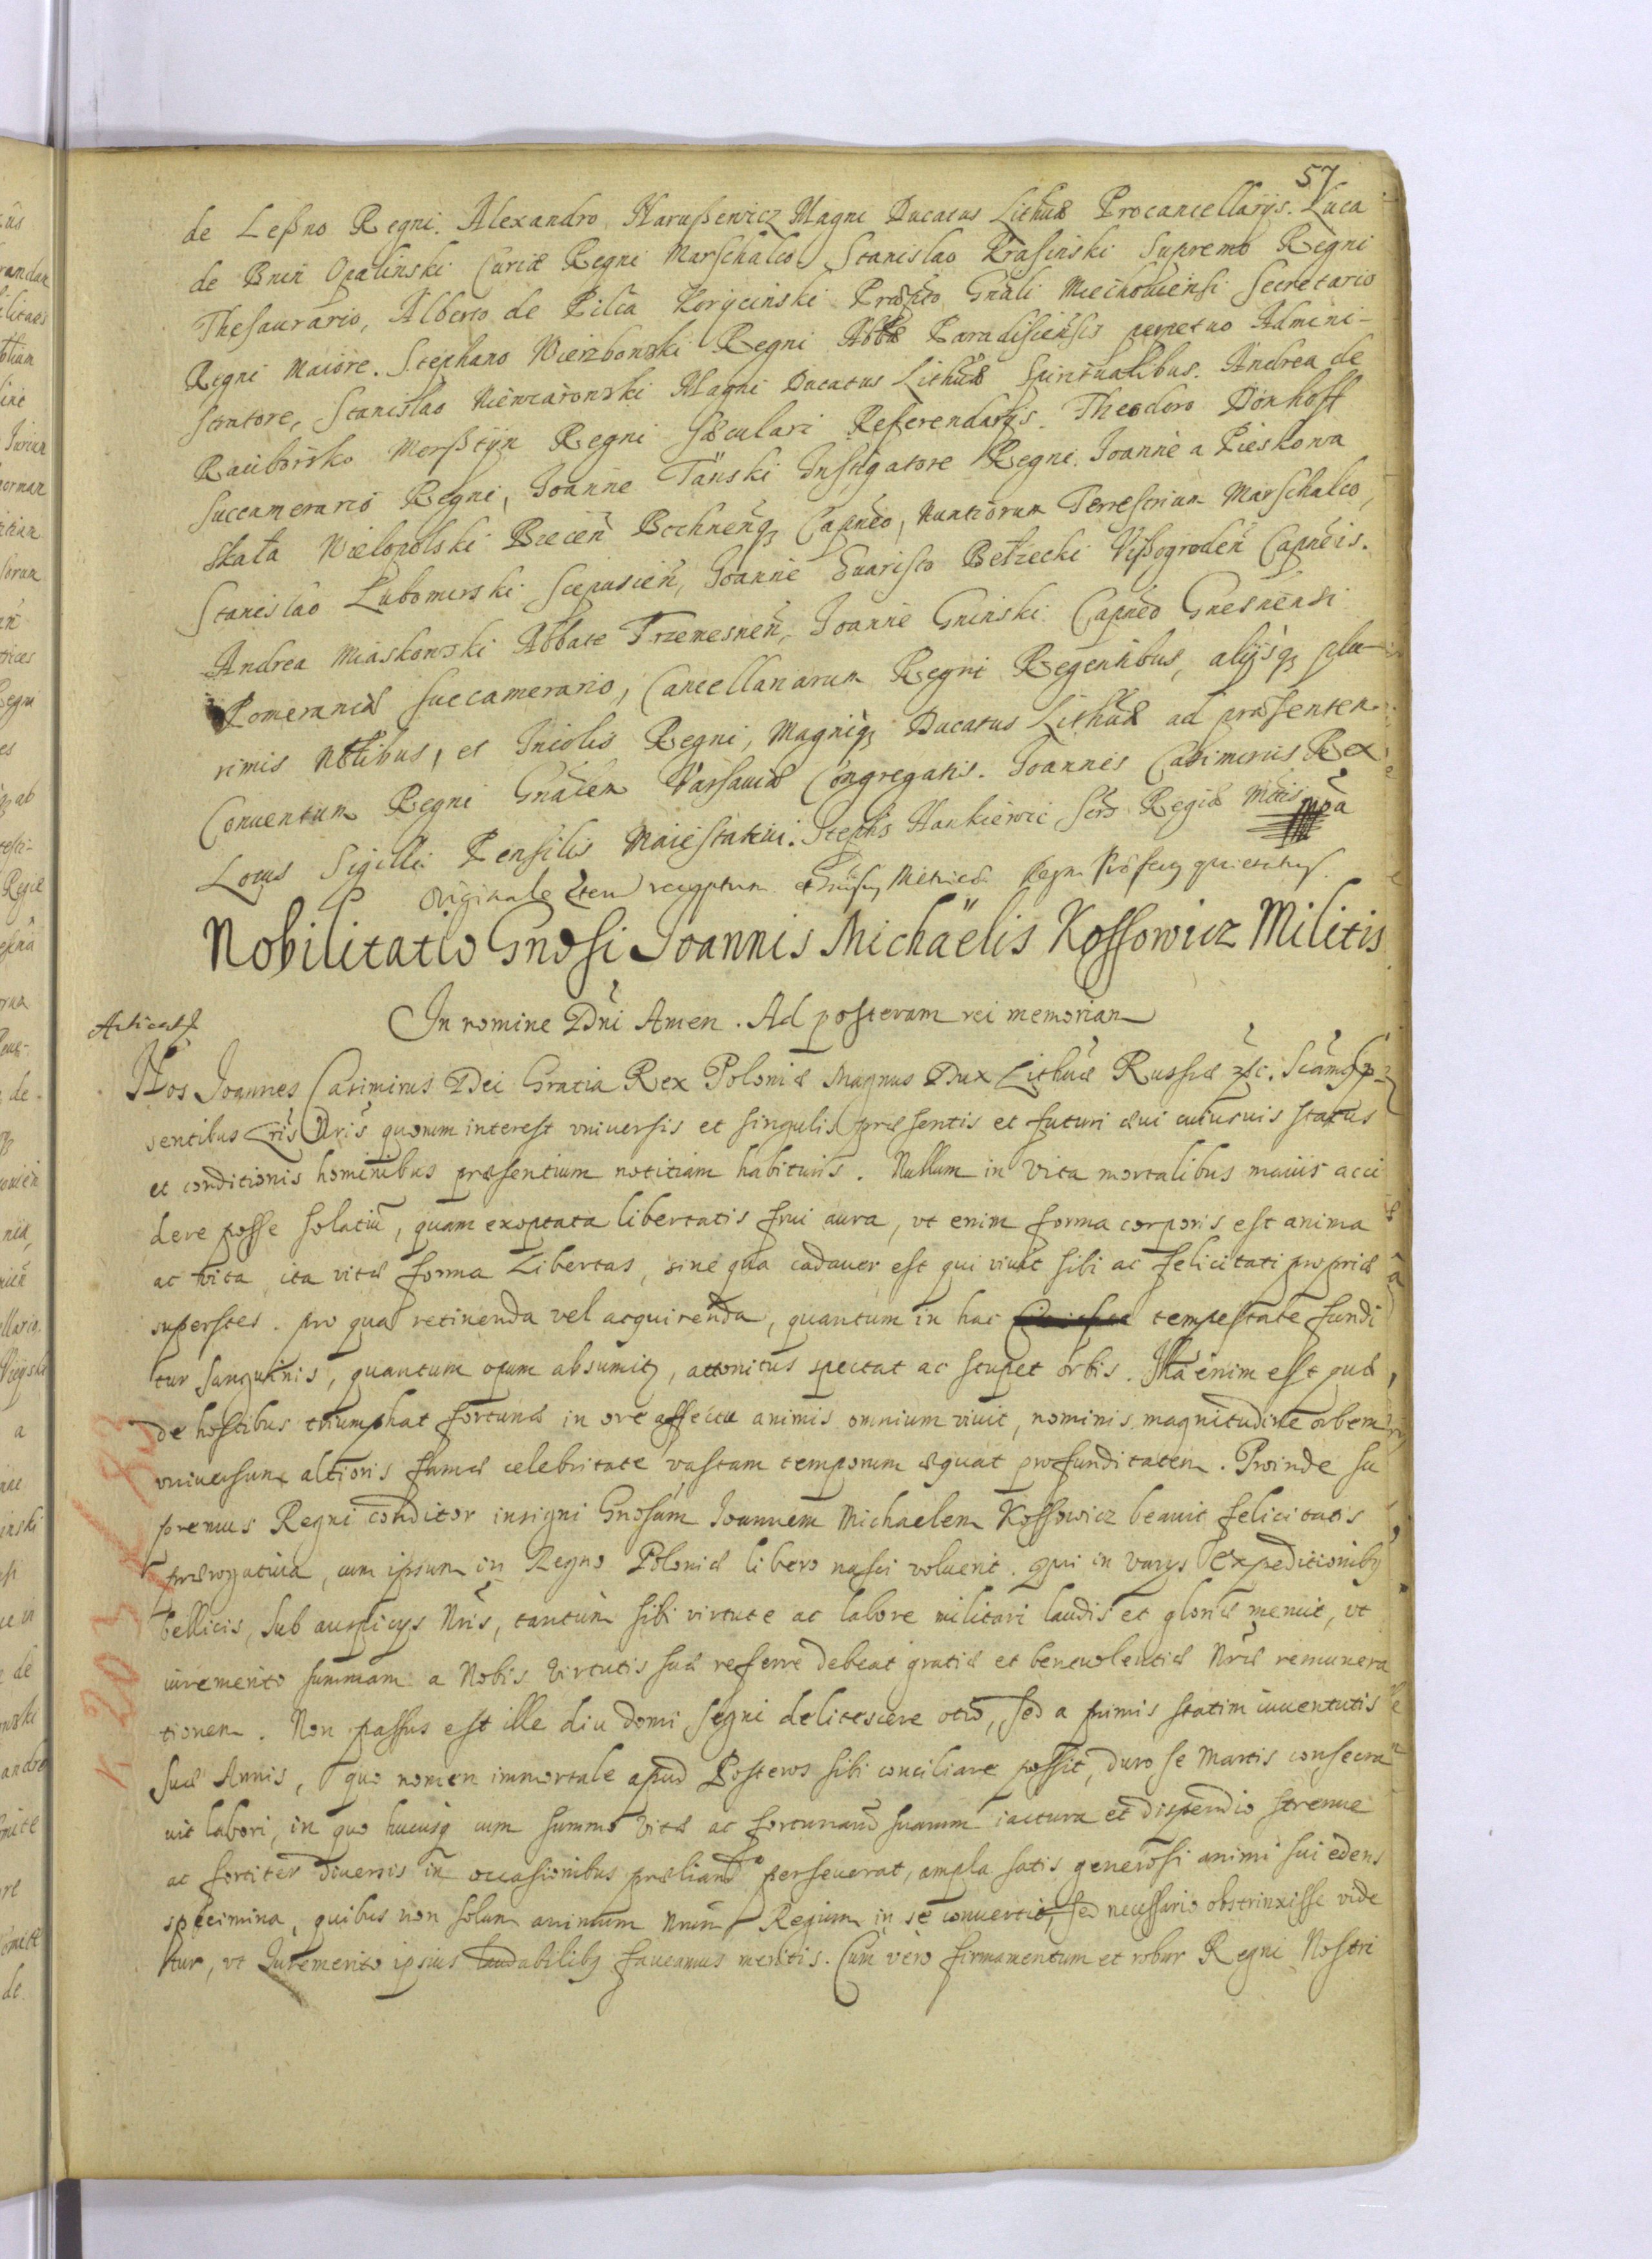 57
de Leßno Regni. Alexandro Narußewicz Magni Ducatus Lithuæ Procancellarijs. Luca
de Bnin Opalinski Curiæ Regni Marschalco. Stanislao Krasinski Supremo Regni
Thesaurario, Alberto de Pilca Koryciński Præpto Gnãli Miechouiensi Secretario
Regni Maiore. Stephano Wierzbowski Regni Abbæ Paradisiensis perpetuo Admini-
stratore, Stanislao Niewiarowski Magni Ducatus Lithuæ Spiritualibus. Andrea de
Raciborsko Morßtyn Regni Sæculari Referendarijs. Theodoro Dönhoff
Succamerario Regni, Joanne Tański Instigatore Regni. Joanne a Pieskowa
Skała Wielopolski Biecen̄ Bochnen̄q3 Capn̄eo, Nuntiorum Terrestrium Marschalco,
Stanislao Lubomirski Scepusien̄, Joanne Euaristo Bełzecki Vißogroden̄ Capn̄eis.
Andrea Miaskowski Abbate Trzemesnen̄, Joanne Gninski Capn̄eo Gnesnensi
Pomeraniæ Succamerario, Cancellariarum Regni Regentibus, alijsq3 plu-
rimis Nbĩlibus, et Incolis Regni, Magniq3 Ducatus Lithuæ ad præsentem
Conuentum Regni Gnãlem Varsauiæ Congregatis. Joannes Casimirus Rex
Locus Sigilli Pensilis Maiestatici. Stephs Hankiewic Scrs Regiæ Mttis mpã
Originale
Nobilitatio Gnosi Joannis Michaëlis Kossowicz Militis
In nomine Dñi Amen. Ad posteram rei memoriam
Nos Joannes Casimirus Dei Gratia Rex Poloniæ Magnus Dux Lithuæ Russiæ &c. p-
sentibus Lr̃is Nr̃is quorum interest vniuersis et singulis præsentis et futuri æui cuiusuis status
et conditionis hominibus præsentium notitiam habituris. Nullum in vita mortalibus maius acci
dere posse solatiũ, quam exoptata libertatis frui aura, vt enim forma corporis est anima
ac vita, ita vitæ forma Libertas, sine qua cadauer est qui viuit sibi ac felicitati propriæ
superstes. pro qua retinenda vel acquirenda, quantum in hac tempestate fundi
tur sanguinis, quantum opum absumit3, attonitus spectat ac stupet orbis. Illa enim est quæ
de hostibus triumphat fortunæ in ore affectu animis omnium viuit, nominis magnitudine orbem
vniuersum altioris famæ celebritate vastam temporum æquat profunditatem. Proinde su
premus Regni conditor insigni Gnosũm Joannem Michaelem Kossowicz beauit felicitatis
prærogatiua, cum ipsum in Regno Poloniæ libero nasci voluerit. qui in varijs expeditionib3
bellicis, sub auspicijs Nr̃is, tantum sibi virtute ac labore militari laudis et gloriæ meruit, vt
iure merito summam a Nobis virtutis suæ referre debeat gratiæ et beneuolentiæ Nr̃æ remunera
tionem. Non passus est ille diu domi segni delitescere otio, sed a primis statim iuuentutis
suæ Annis, quo nomen immortale apud Posteros sibi conciliare possit, duro se Martis consecra
uit labori, in quo hucusq3 cum summo vitæ ac fortunarũ suarum iactura et dispendio strenue
ac fortiter diuersis in occasionibus præliand perseuerat, ampla satis generosi animi sui edens
specimina, quibus non solum animum Nrũm Regium in se conuertit, sed necessario obstrinxisse vide
tur, vt iuremerito ipsius laudabilib3 faueamus meritis. Cum vero firmamentum et robur Regni Nostri